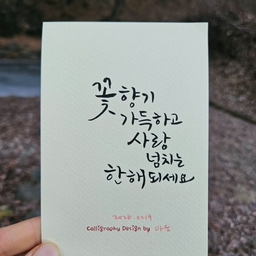 꽃향기
가득하고
사랑
넘치는
한해되세요
Calligraphy Design by